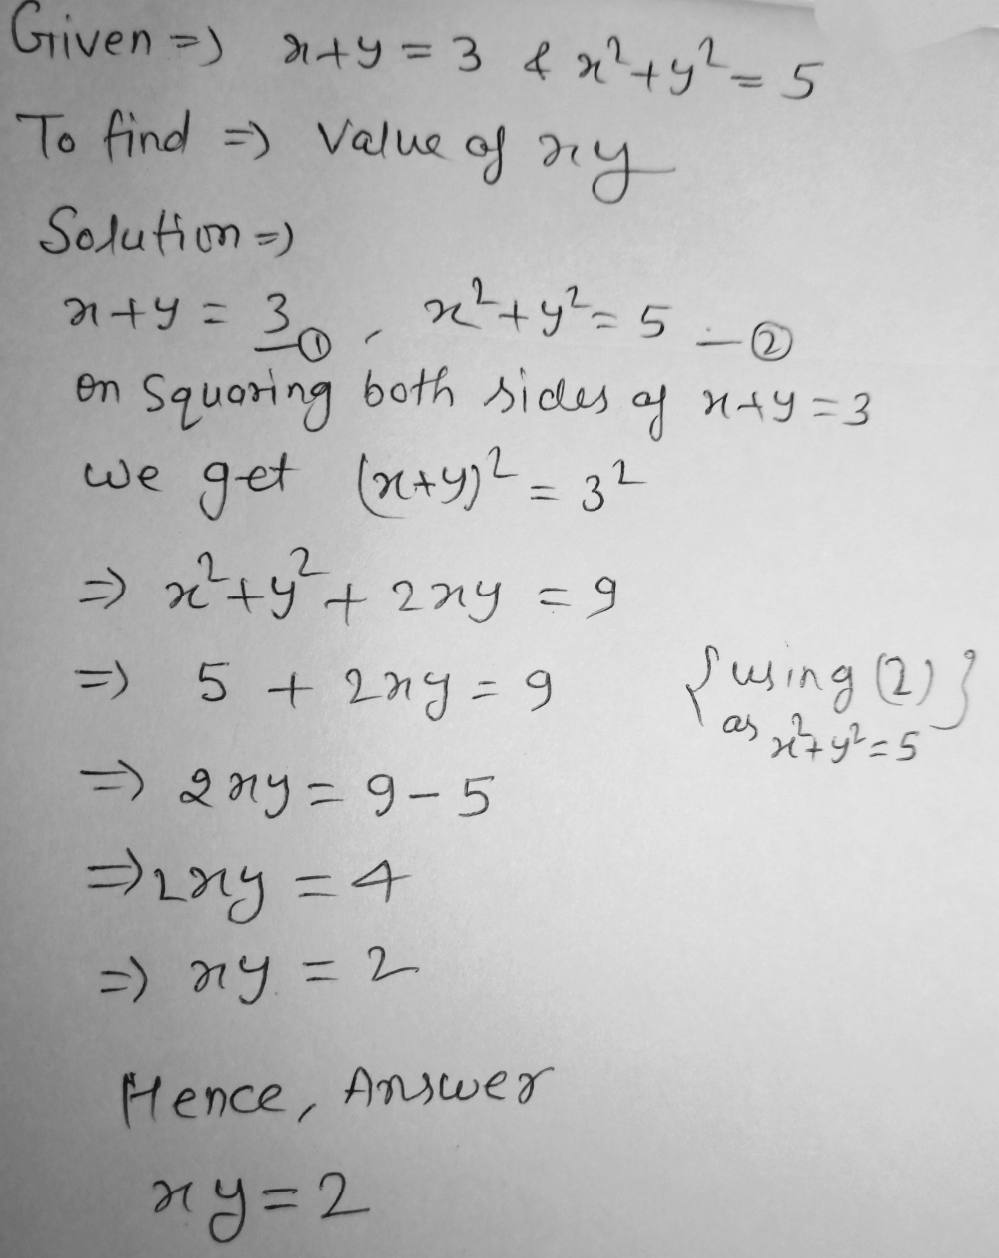 Given => x+y = 3 & x²+y² = 5
To find => Value of xy
Solution =>
x+y = 3 —①, x²+y² = 5 —②
on Squaring both sides of x+y=3
we get (x+y)² = 3²
=> x²+y²+2xy = 9
=> 5 + 2xy = 9 {using (2)}
as x²+y²=5
=> 2xy = 9-5
=> 2xy = 4
=> xy = 2
Hence, Answer
xy = 2